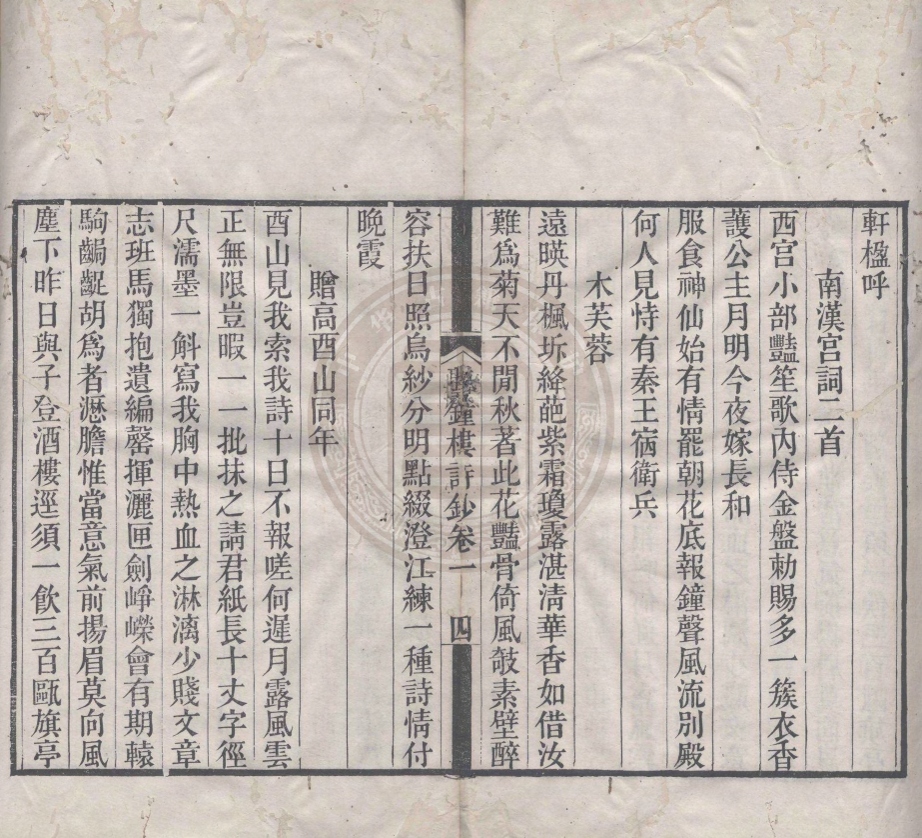 軒楹呼
南漢宮詞二首
西宮小部豔笙歌內侍金盤勅賜多一簇衣香
護公主月明今夜嫁長和
服食神仙始有情罷朝花底報鐘聲風流別殿
何人見恃有秦王宿衛兵
木芙蓉
遠暎丹楓坼絳葩紫霜瓊露湛淸華香如借汝
難爲菊天不開秋著此花豔骨倚風欹素壁醉
鐘樓詩鈔卷一
四
容扶日照烏紗分明點綴澄江練一種詩情付
晚霞
贈高酉山同年
酉山見我索我詩十日不報嗟何遲月露風雲
正無限豈暇一一批抹之請君紙長十丈字徑
尺濡墨一斛寫我胸中熱血之淋漓少賤文章
志班馬獨抱遺編罄揮灑匣劍崢嶸會有期轅
駒齷齪胡爲者瀝膽惟當意氣前揚眉莫向風
塵下昨日與子登酒樓逕須一飲三百甌旗亭